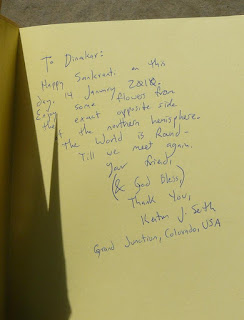 To Dinakar:
Happy Sankranti on this
day, 14 January 2010.
Enjoy some flowers from
the exact opposite side
of the northern hemisphere.
The World is Round -
Till we meet again,
your friend,
(& God Bless,)
Thank You,
J. Seth
Grand Junction, Colorado, USA